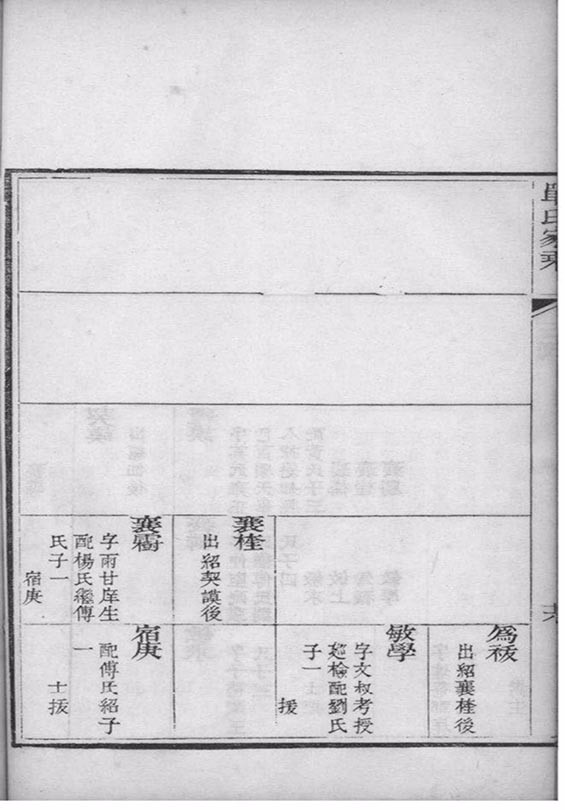 單氏家乘
襄桂
出紹契謨後
襄樹
字雨甘庠生
配楊氏繼傅
氏子一
宿庚
爲祓
出紹襄桂後
敏學
字文叔考授
巡檢配劉氏
子一
援
宿庚
配傅氏紹子
一
士拔